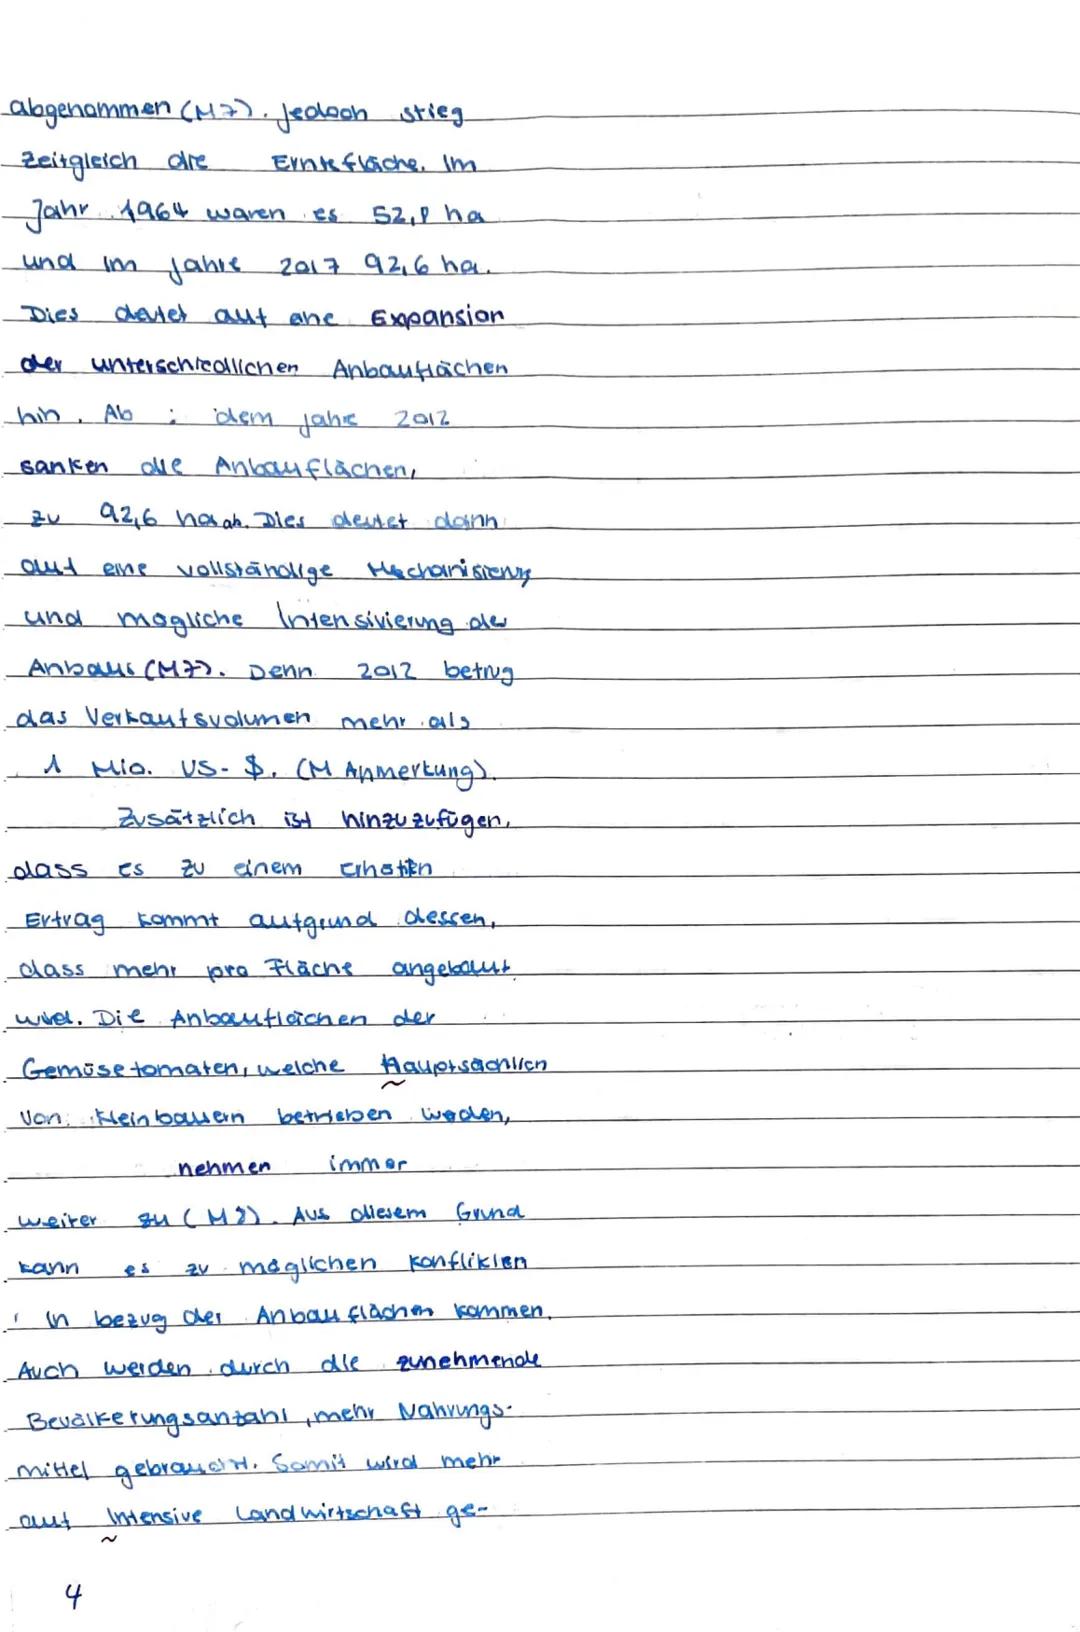 abgenommen (M7). Jedoch stieg
zeitgleich die Erntefläche. Im
Jahr 1964 waren es 52,8 ha
und im Jahre 2017 92,6 ha.
Dies deutet auf eine Expansion
der unterschiedlichen Anbauflächen
hin. Ab dem Jahre 2012
sanken die Anbauflächen,
zu 92,6 ha ab. Dies deutet dann
auf eine vollständige Mechanisierung
und mögliche Intensivierung des
Anbaus (M7). Denn 2012 betrug
das Verkaufsvolumen mehr als
1 Mio. US-$. (M Anmerkung).
Zusätzlich ist hinzuzufügen,
dass es zu einem erhöhten
Ertrag kommt aufgrund dessen,
dass mehr pro Fläche angebaut
wird. Die Anbauflächen der
Gemüsetomaten, welche Hauptsächlich
von Kleinbauern betrieben werden,
nehmen immer
weiter zu (M8). Aus diesem Grund
kann es zu möglichen Konflikten
in bezug der Anbauflächen kommen.
Auch werden durch die zunehmende
Bevölkerungsanzahl, mehr Nahrungs-
mittel gebraucht. Somit wird mehr
auf Intensive Landwirtschaft ge-
4